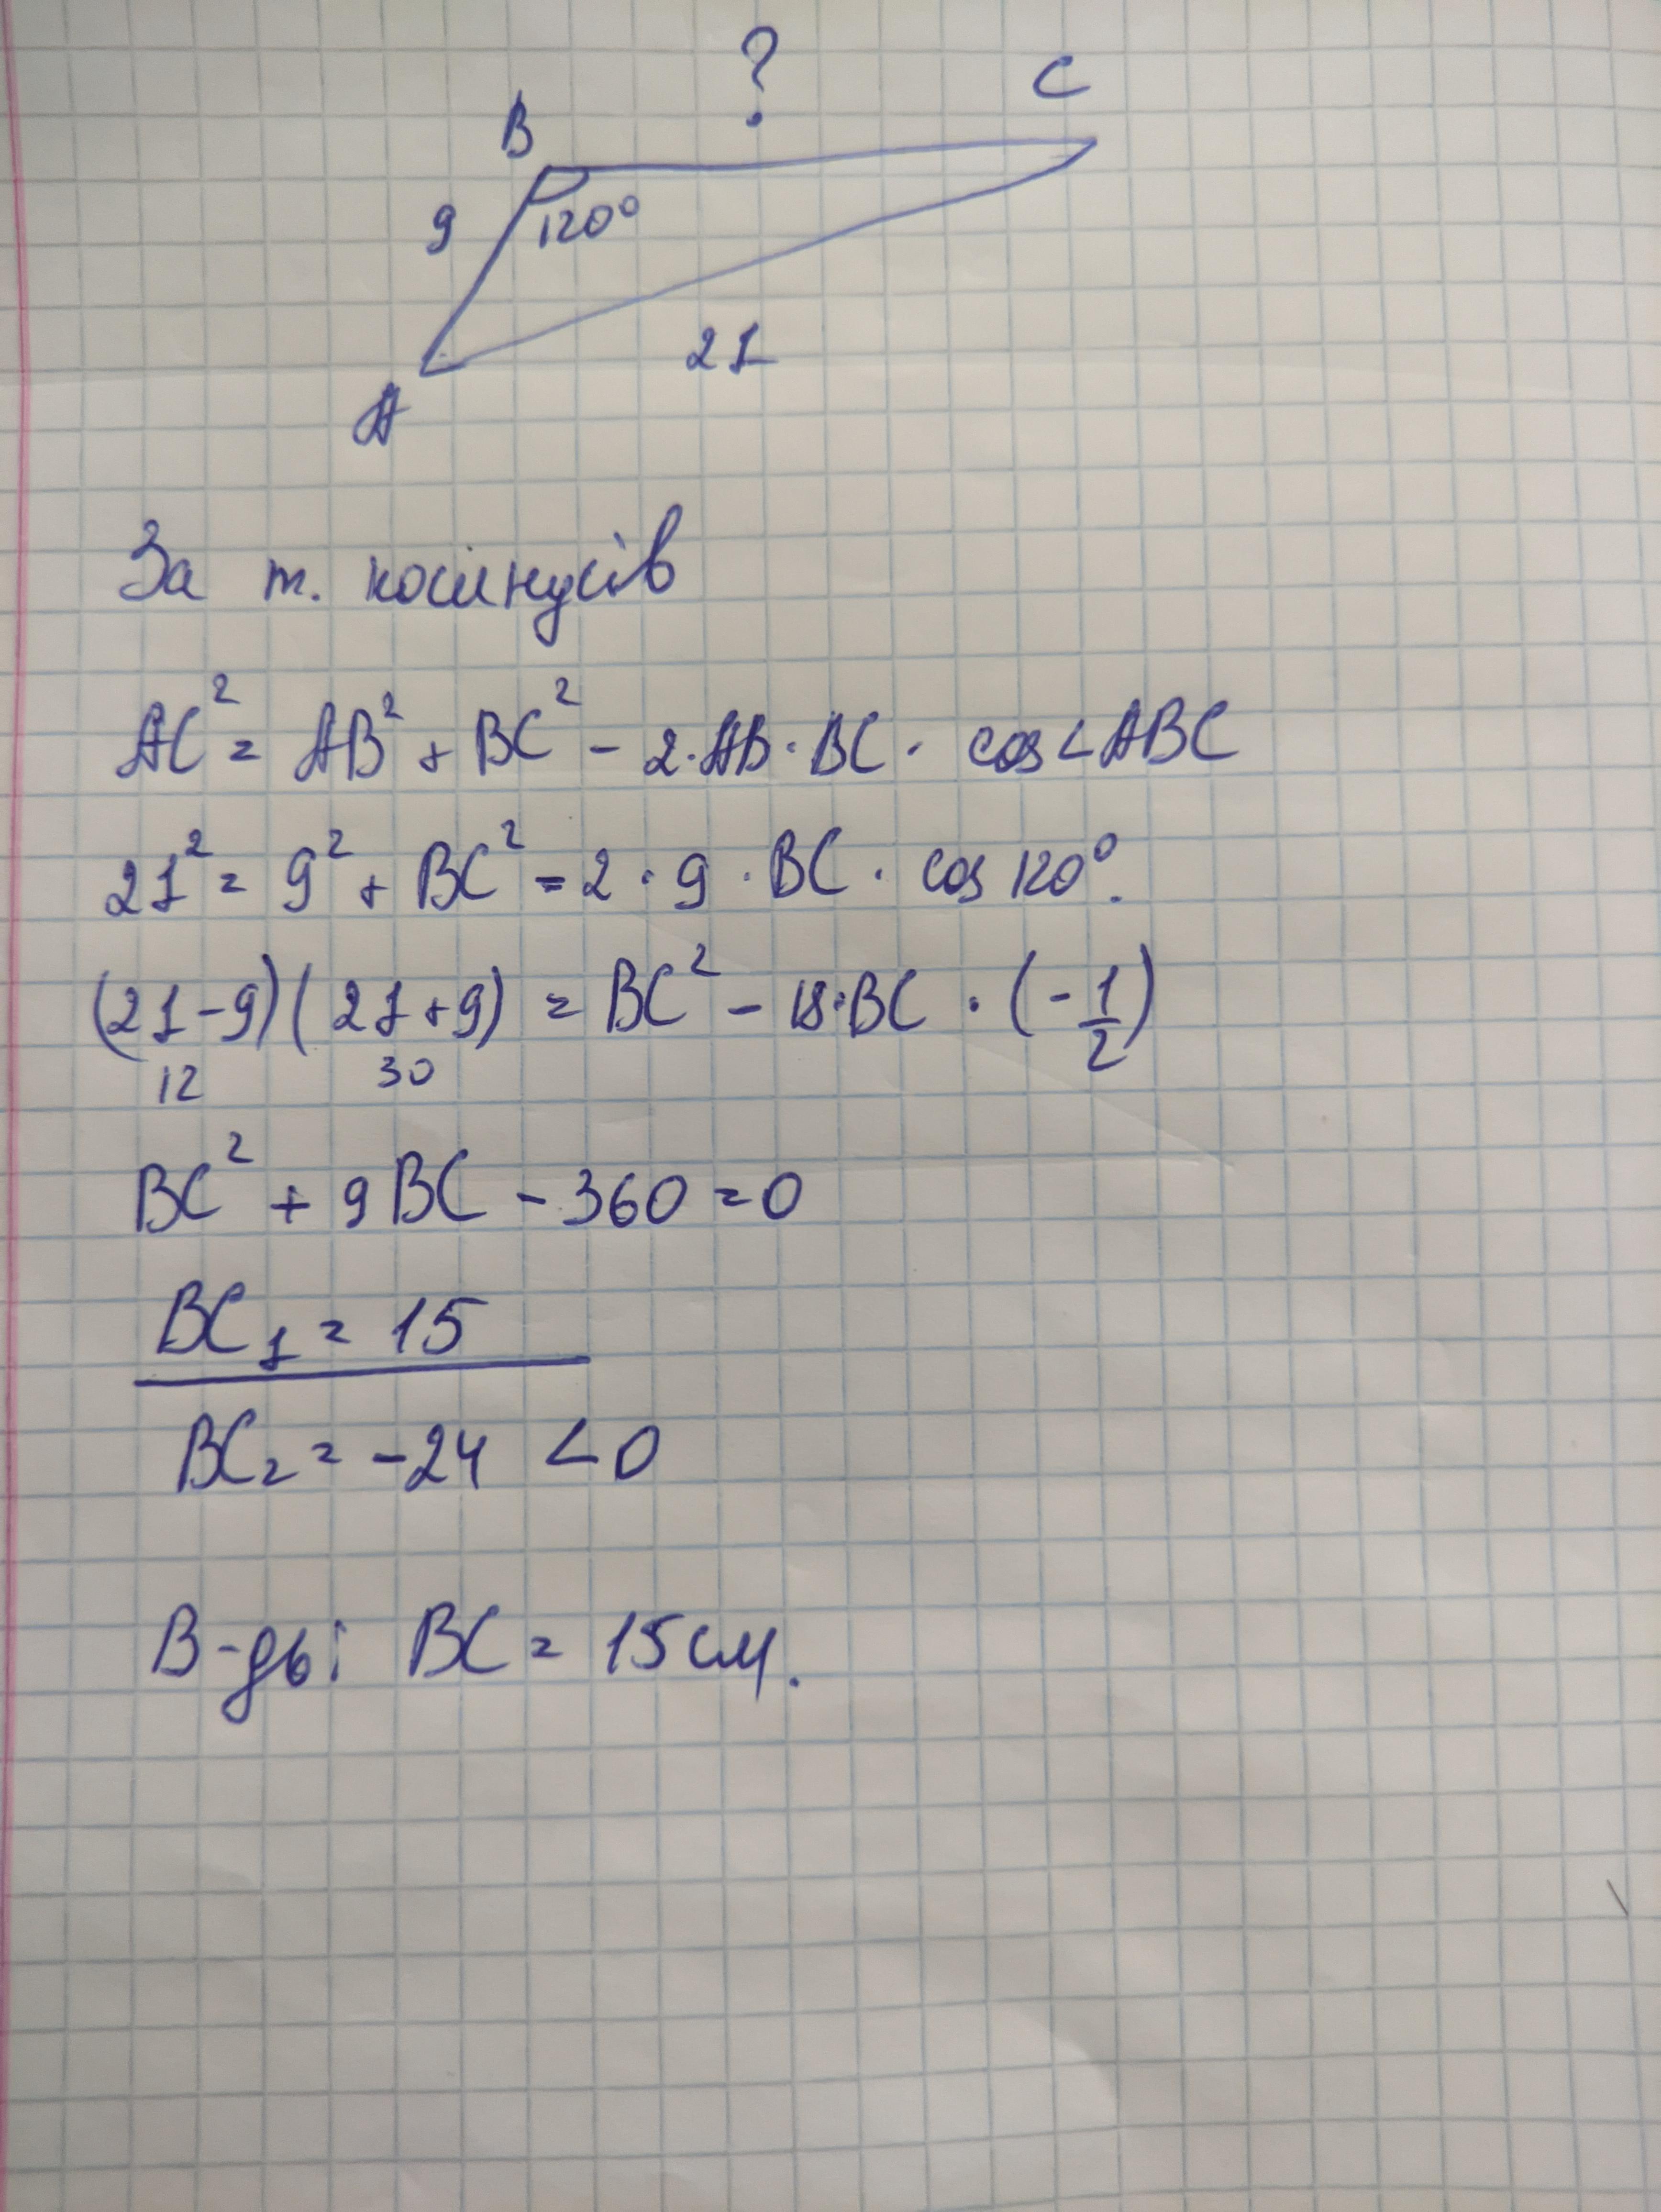 ?
B
C
9
120°
21
A
За т. косинусів
AC² = AB² + BC² - 2·AB·BC· cos∠ABC
21² = 9² + BC² = 2 · 9 · BC · cos 120°.
(21-9)(21+9) = BC² - 18·BC · (-1/2)
12 30
BC² + 9BC - 360 = 0
BC₁ = 15
BC₂ = -24 < 0
В-дь: BC = 15 см.